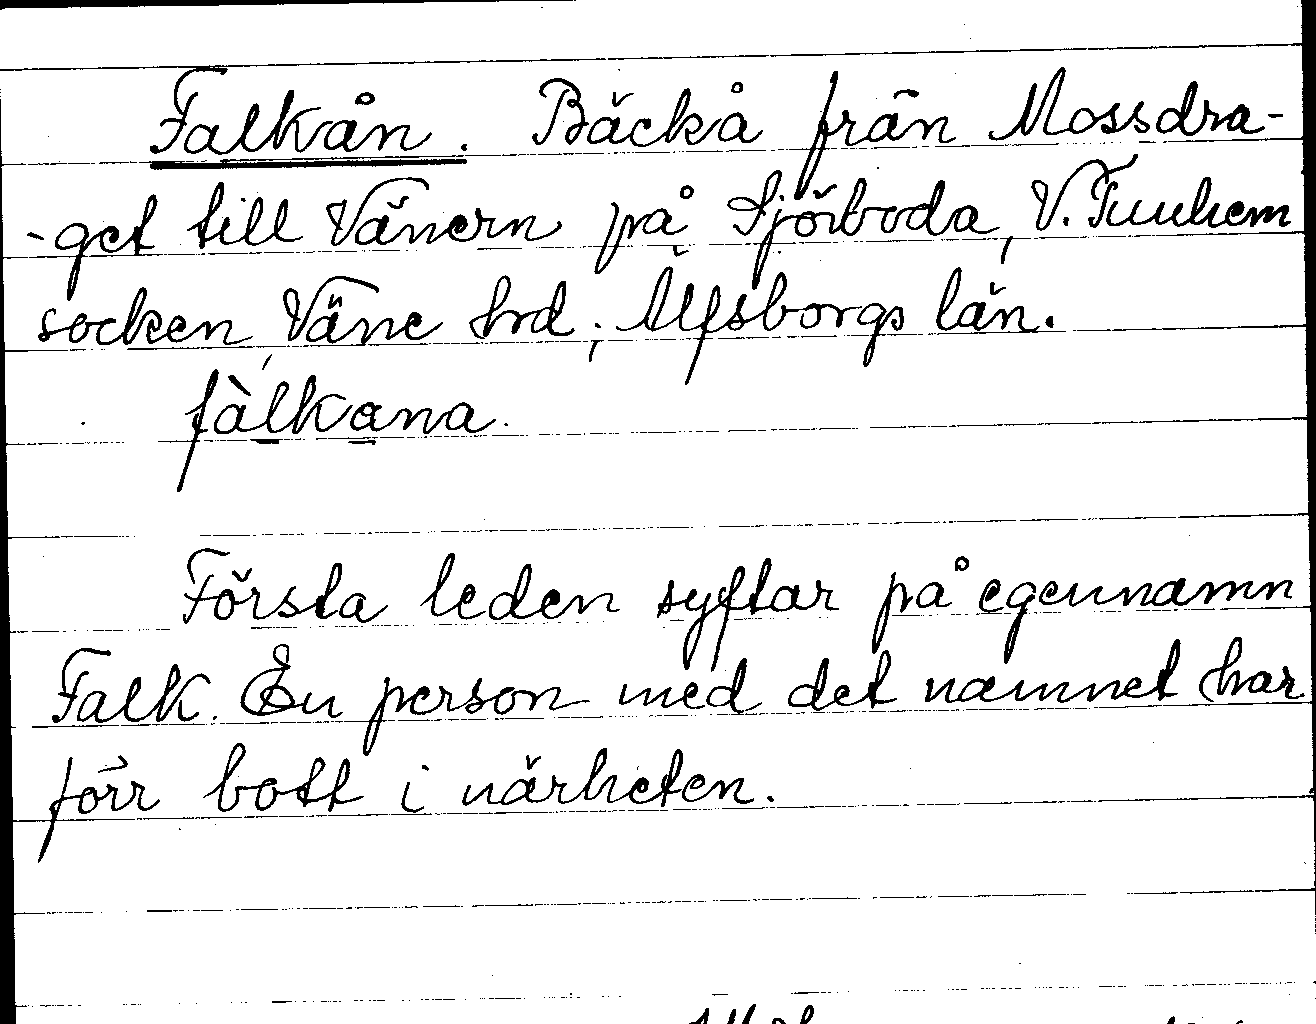 Falkån. Bäckå från Mossdra-
-get till Vänern på Sjöboda, V. Tunhem
socken, Väne hrd; Älfsborgs län.
fàlkana.
Första leden syftar på egennamn
Falk. En person med det namnet har
förr bott i närheten.